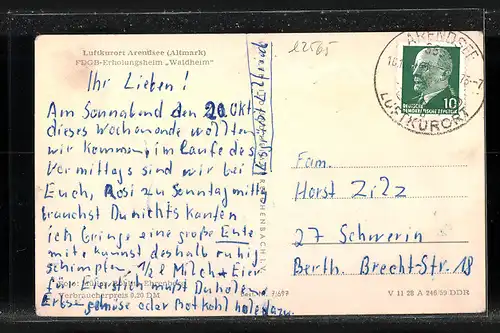 Luftkurort Arendsee (Altmark)
FDGB-Erholungsheim „Waldheim"
Ihr Lieben!
Am Sonnabend den 20 Okt
dieses Wochenende wollten
wir kommen im Laufe des
Vormittags sind wir bei
Euch, Rosi zu Sonntag mittg
brauchst Du nichts kaufen
ich bringe eine große Ente
mit kannst deshalb ruhig
schimpfen, 1/2 l Milch + Eier
für Eierstich must Du holen
Erbse gemüse oder Rotkohl hole dazu.
Verbraucherpreis 0,20 DM
12565
ARENDSEE
LUFTKURORT
DEUTSCHE
DEMOKRATISCHE REPUBLIK
10
Fam.
Horst Zilz
27 Schwerin
Berth. Brecht-Straße 18
V 11 28 A 246/69 DDR